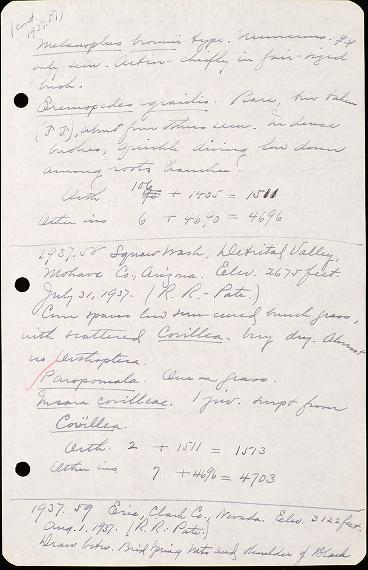 (cont.
1937-57)
Melanoplus bowni type. Numerous. ♀♀
only seen. Active - chiefly in fair-sized
bush.
Eremopedes gracilis. Rare, two taken
(♂♂), about four others seen. In dense
bushes, quickly diving low down
among roots & branches.
Orth. 106 + 1405 = 1511
Other ins 6 + 4690 = 4696
1937.58 Squaw Wash, Detrital Valley,
Mohave Co., Arizona. Elev. 2675 feet.
July 31, 1937. (R. R. - Pate.)
sparse low sun-cured bunch grass,
with scattered Covillea. Very dry. Almost
no Orthoptera.
Paropomala. One on grass.
Insara covilleae. 1 juv. swept from
Covillea.
Orth. 2 + 1511 = 1513
Other ins 7 + 4696 = 4703
1937.59 Erie, Clark Co., Nevada. Elev. 3122 feet.
Aug. 1. 1937. (R. R. Pate.)
Draw betw. Bird Spring Mts and shoulder of Black